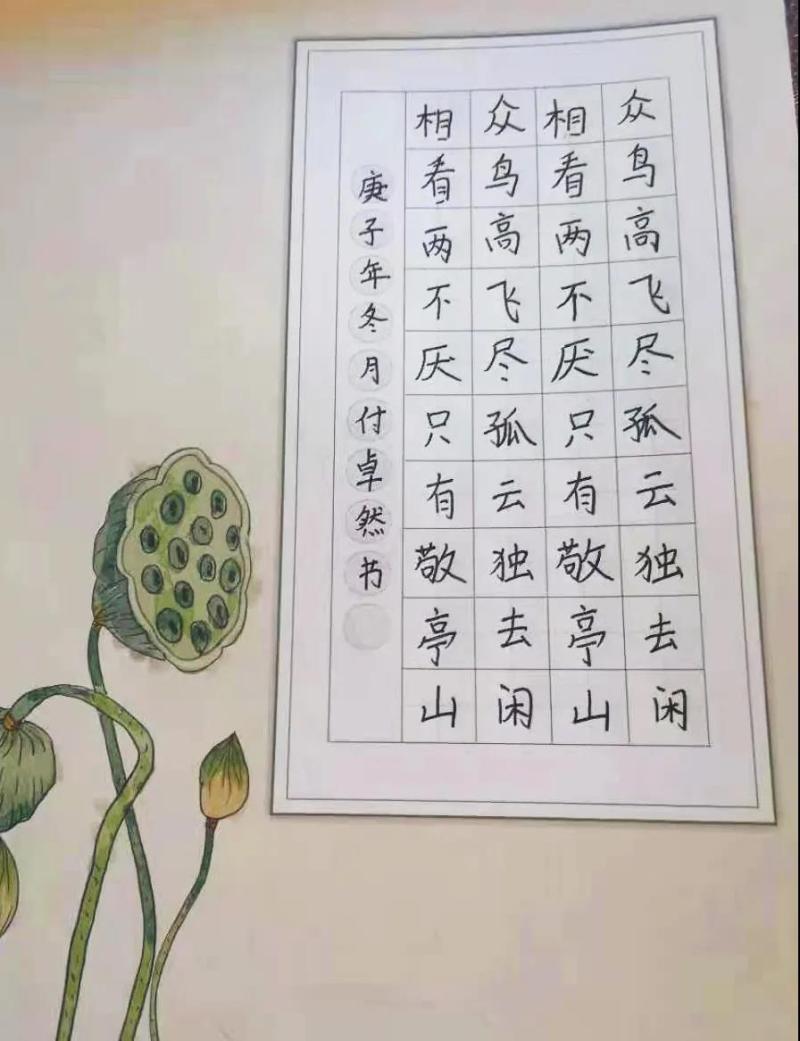 众鸟高飞尽孤云独去闲
相看两不厌只有敬亭山
众鸟高飞尽孤云独去闲
相看两不厌只有敬亭山
庚子年冬月付卓然书